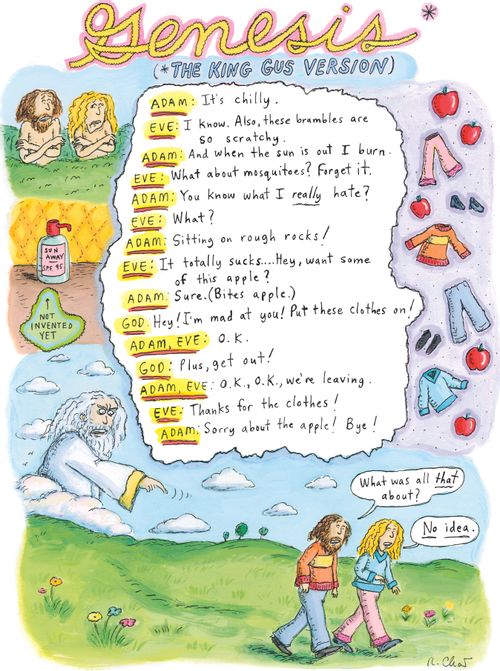 Genesis*
(*THE KING GUS VERSION)
ADAM: It's chilly.
EVE: I know. Also, these brambles are
so scratchy.
ADAM: And when the sun is out I burn.
EVE: What about mosquitoes? Forget it.
ADAM: You know what I really hate?
EVE: What?
ADAM: Sitting on rough rocks!
EVE: It totally sucks...Hey, want some
of this apple?
ADAM: Sure. (Bites apple.)
GOD: Hey! I'm mad at you! Put these clothes on!
ADAM, EVE: O.K.
GOD: Plus, get out!
ADAM, EVE: O.K., O.K., we're leaving.
EVE: Thanks for the clothes!
ADAM: Sorry about the apple! Bye!
SUN
AWAY
SPF 95
↑
NOT
INVENTED
YET
What was all that
about?
No idea.
R. Chast